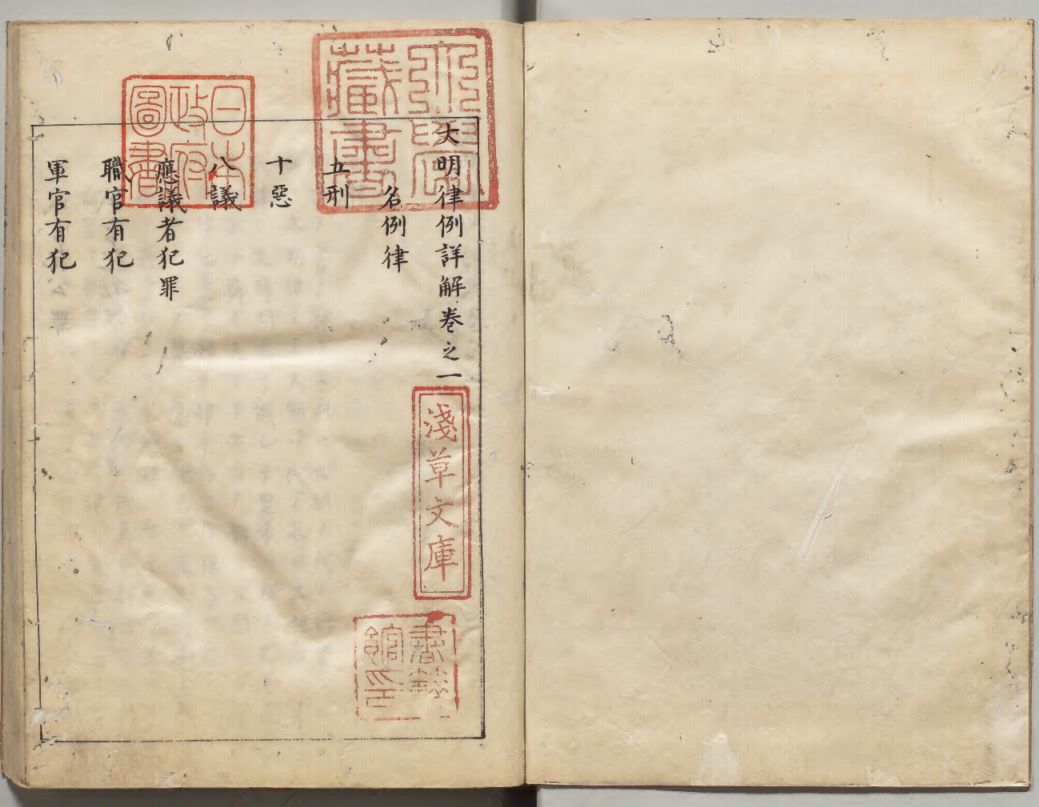 大明律例詳解卷之一
名例律
五刑
十惡
八議
應議者犯罪
職官有犯
軍官有犯
淺草文庫
日本
政府
圖書
藏書
書籍
館印